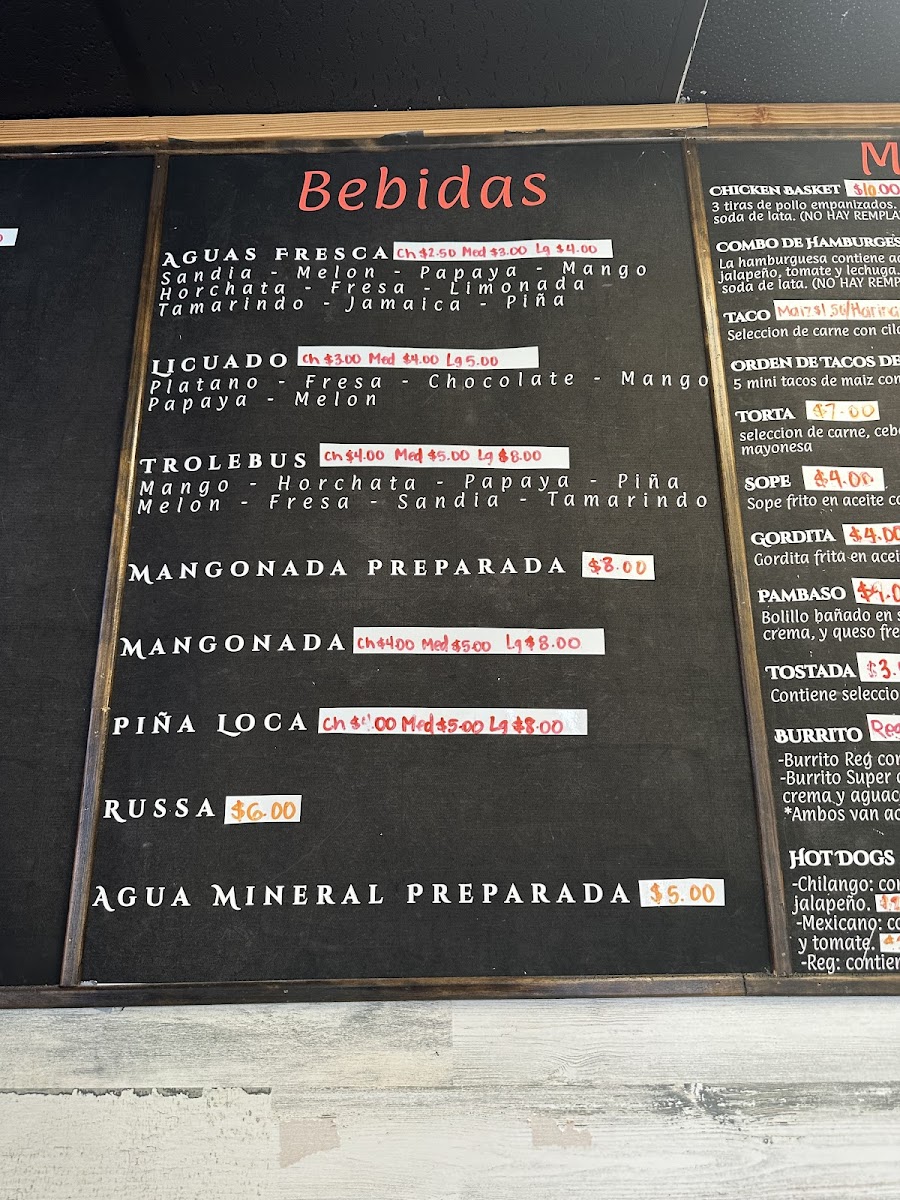 Bebidas
Aguas Fresca Ch $2.50 Med $3.00 Lg $4.00
Sandia - Melon - Papaya - Mango
Horchata - Fresa - Limonada
Tamarindo - Jamaica - Piña
Licuado Ch $3.00 Med $4.00 Lg 5.00
Platano - Fresa - Chocolate - Mango
Papaya - Melon
Trolebus Ch $4.00 Med $5.00 Lg $8.00
Mango - Horchata - Papaya - Piña
Melon - Fresa - Sandia - Tamarindo
Mangonada Preparada $8.00
Mangonada Ch $4.00 Med $5.00 Lg $8.00
Piña Loca Ch $4.00 Med $5.00 Lg $8.00
Russa $6.00
Agua Mineral Preparada $5.00
M
Chicken Basket $10.00
3 tiras de pollo empanizados.
soda de lata. (NO HAY REMPLA
Combo de Hamburges
La hamburguesa contiene
jalapeño, tomate y lechuga.
soda de lata. (NO HAY REMP
Taco Maiz $1.50/Harina
Seleccion de carne con
Orden de Tacos de
5 mini tacos de maiz con
Torta $7.00
seleccion de carne, ceb
mayonesa
Sope $4.00
Sope frito en aceite
Gordita $4.00
Gordita frita en acei
Pambaso
Bolillo bañado en
crema, y queso fre
Tostada $3.
Contiene seleccio
Burrito Reg
-Burrito Reg con
-Burrito Super
crema y aguac
*Ambos van
Hot Dogs
-Chilango: con
jalapeño.
-Mexicano:
y tomate.
-Reg: contien